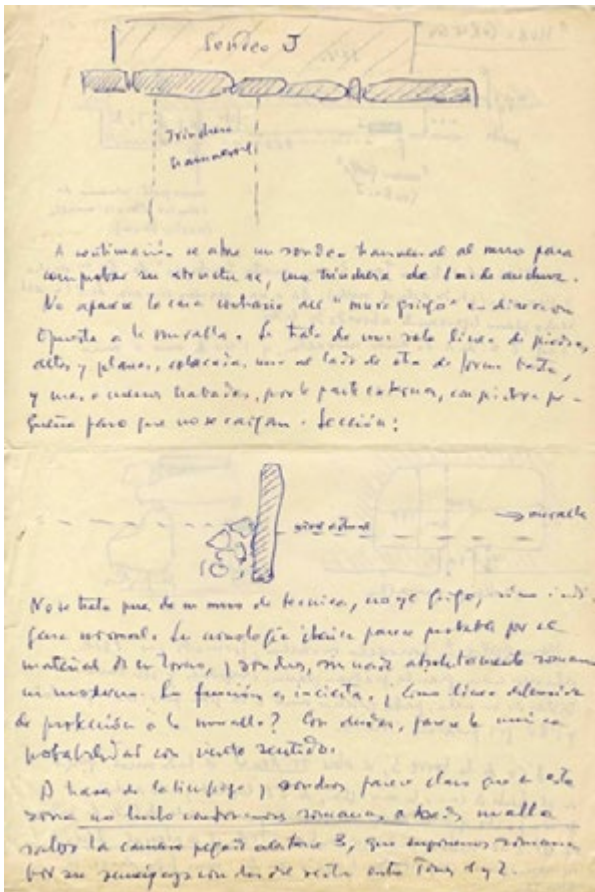 Sondeo J
Trinchera
transversal
A continuación se abre un sondeo transversal al muro para
comprobar su estructura, una trinchera de 1 m de anchura.
No aparece la cara contraria del "muro griego" en direccion
opuesta a la muralla. Se trata de una sola línea de piedras,
altas y planas, colocadas una al lado de otra de forma basta,
y mas o menos trabadas, por la parte externa, con piedra pe-
queña para que no se caigan. Sección:
nivel actual
→ muralla
No se trata pues de un muro de tecnica, no ya griega, sino indí-
gena normal. La cronología ibérica parece probable por el
material de su torno, y sondeos, sin nada absolutamente romano
ni moderno. La función es incierta. ¿Como línea defensiva
de protección a la muralla? Con dudas, parece la unica
probabilidad con cierto sentido.
A base de la limpieza y sondeos, parece claro que en esta
zona no hubo construcciones romanas
salvo la camara pegada a la torre 3, que suponemos romana
por su semejanza con la del recinto entre Torres 1 y 2.